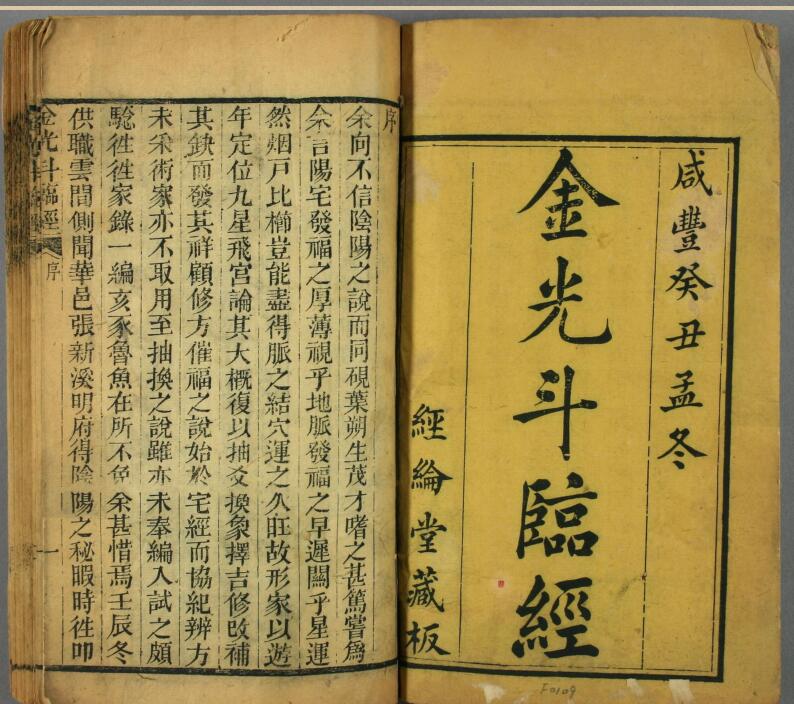 咸豐癸丑孟冬
金光斗臨經
經綸堂藏板
序
余向不信陰陽之說而同硯葉朔生茂才嗜之甚篤嘗爲
余言陽宅發福之厚薄視乎地脈發福之早遲關乎星運
然烟戸比櫛豈能盡得脈之結穴運之久旺故形家以遊
年定位九星飛宮論其大概復以抽爻換象擇吉修改補
其缺而發其祥顧修方催福之說始於宅經而協紀辨方
未采術家亦不取用至抽換之說雖亦未奉編入試之頗
騐徃徃家錄一編亥豕魯魚在所不免余甚惜焉壬辰冬
供職雲間側聞華邑張新溪明府得陰陽之秘暇時徃叩
金光斗臨經
序
一
F0109